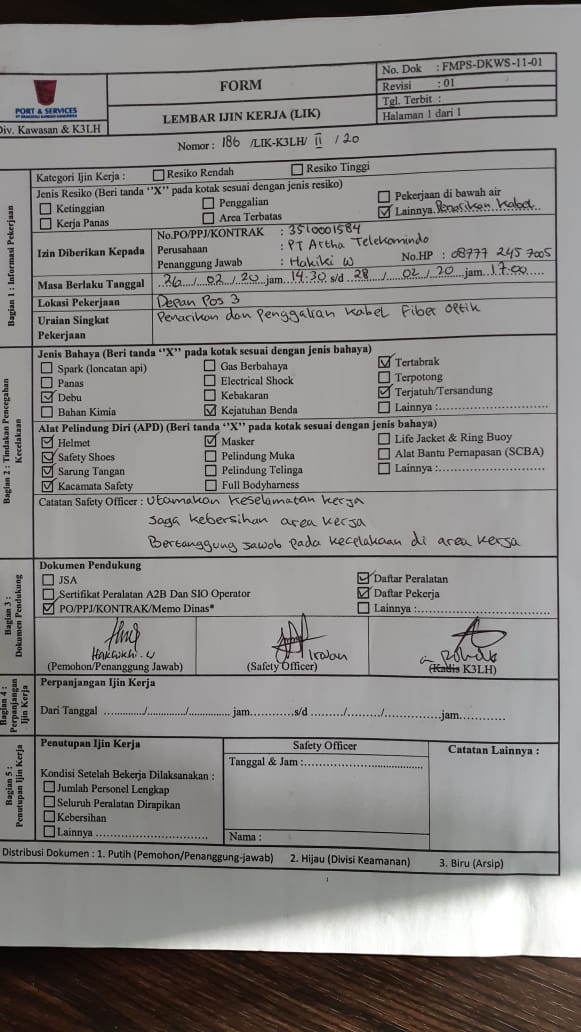 PORT & SERVICES
Div. Kawasan & K3LH
FORM
LEMBAR IJIN KERJA (LIK)
No. Dok : FMPS-DKWS-11-01
Revisi : 01
Tgl. Terbit :
Halaman 1 dari 1
Nomor : 186 /LIK-K3LH/ II / 20
Bagian 1 : Informasi Pekerjaan
Kategori Ijin Kerja : Resiko Rendah Resiko Tinggi
Jenis Resiko (Beri tanda ''X'' pada kotak sesuai dengan jenis resiko)
Ketinggian Penggalian Pekerjaan di bawah air
Kerja Panas Area Terbatas Lainnya. Penarikan Kabel
Izin Diberikan Kepada
No.PO/PPJ/KONTRAK : 3510001584
Perusahaan : PT Artha Telekomindo
Penanggung Jawab : Hakiki W No.HP : 08777 245 7005
Masa Berlaku Tanggal 26 / 02 / 20 jam 14.30 s/d 28 / 02 / 20 jam 17.00
Lokasi Pekerjaan Depan Pos 3
Uraian Singkat Pekerjaan Penarikan dan Penggalian Kabel Fiber Optik
Bagian 2 : Tindakan Pencegahan Kecelakaan
Jenis Bahaya (Beri tanda ''X'' pada kotak sesuai dengan jenis bahaya)
Spark (loncatan api) Gas Berbahaya Tertabrak
Panas Electrical Shock Terpotong
Debu Kebakaran Terjatuh/Tersandung
Bahan Kimia Kejatuhan Benda Lainnya :
Alat Pelindung Diri (APD) (Beri tanda ''X'' pada kotak sesuai dengan jenis bahaya)
Helmet Masker Life Jacket & Ring Buoy
Safety Shoes Pelindung Muka Alat Bantu Pernapasan (SCBA)
Sarung Tangan Pelindung Telinga Lainnya :
Kacamata Safety Full Bodyharness
Catatan Safety Officer : Utamakan keselamatan kerja
Jaga kebersihan area kerja
Bertanggung jawab pada kecelakaan di area kerja
Bagian 3 : Dokumen Pendukung
Dokumen Pendukung
JSA Daftar Peralatan
Sertifikat Peralatan A2B Dan SIO Operator Daftar Pekerja
PO/PPJ/KONTRAK/Memo Dinas* Lainnya :
Irwan
(Pemohon/Penanggung Jawab) (Safety Officer) (Kadis K3LH)
Bagian 4 : Perpanjangan Ijin Kerja
Perpanjangan Ijin Kerja
Dari Tanggal ............/............/................ jam............s/d ........../........./...............jam............
Bagian 5 : Penutupan Ijin Kerja
Penutupan Ijin Kerja Safety Officer Catatan Lainnya :
Tanggal & Jam :
Kondisi Setelah Bekerja Dilaksanakan :
Jumlah Personel Lengkap
Seluruh Peralatan Dirapikan
Kebersihan
Lainnya Nama :
Distribusi Dokumen : 1. Putih (Pemohon/Penanggung-jawab) 2. Hijau (Divisi Keamanan) 3. Biru (Arsip)